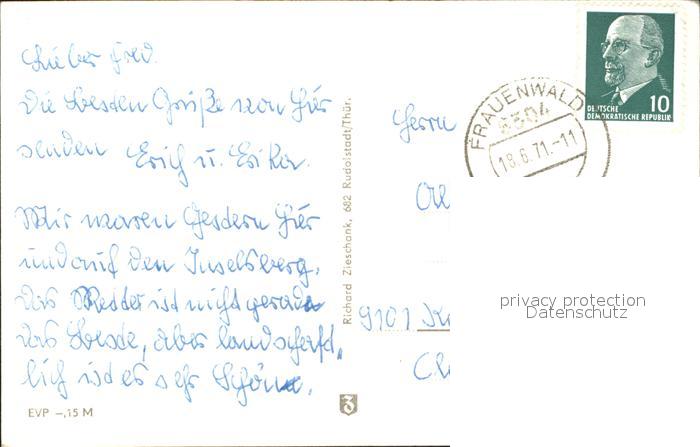 Lieber Fred.
Die besten Grüße von hier
senden Erich u. Erika.
Wir waren Gestern hier
und auf den Inselsberg.
das Wetter ist nicht gerade
das beste, aber landschaft,
lich ist es sehr Schön.
EVP -,15 M
Richard Zieschank, 682 Rudolstadt/Thür.
FRAUENWALD
6304
18.6.71.-11
DEUTSCHE
DEMOKRATISCHE REPUBLIK
10
Herrn
9101
privacy protection
Datenschutz